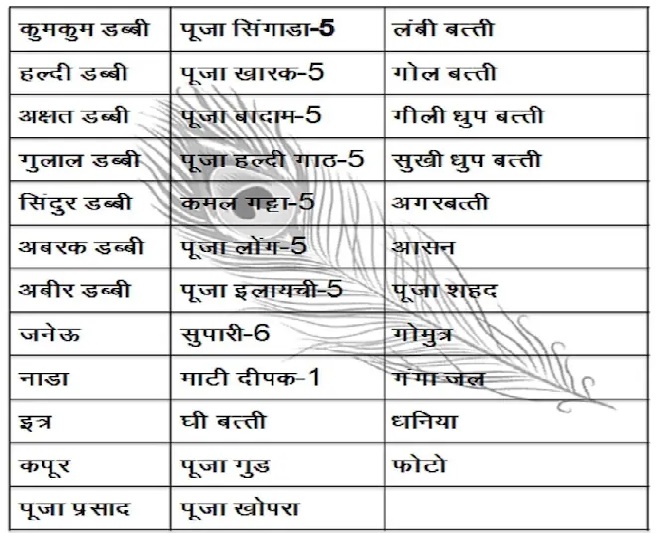 कुमकुम डब्बी पूजा सिंगाडा-5 लंबी बत्ती
हल्दी डब्बी पूजा खारक-5 गोल बत्ती
अक्षत डब्बी पूजा बादाम-5 गीली धुप बत्ती
गुलाल डब्बी पूजा हल्दी गाठ-5 सुखी धुप बत्ती
सिंदुर डब्बी कमल गट्टा-5 अगरबत्ती
अबरक डब्बी पूजा लोंग-5 आसन
अबीर डब्बी पूजा इलायची-5 पूजा शहद
जनेऊ सुपारी-6 गोमुत्र
नाडा माटी दीपक-1 गंगा जल
इत्र घी बत्ती धनिया
कपूर पूजा गुड फोटो
पूजा प्रसाद पूजा खोपरा